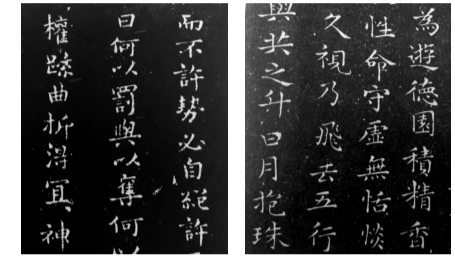 而不許勢必自絕許
曰何以罰與以奪何
權踈曲折得宜神
為遊德園積精香
性命守虛無恬惔
久視乃飛去五行
與共之升日月抱珠